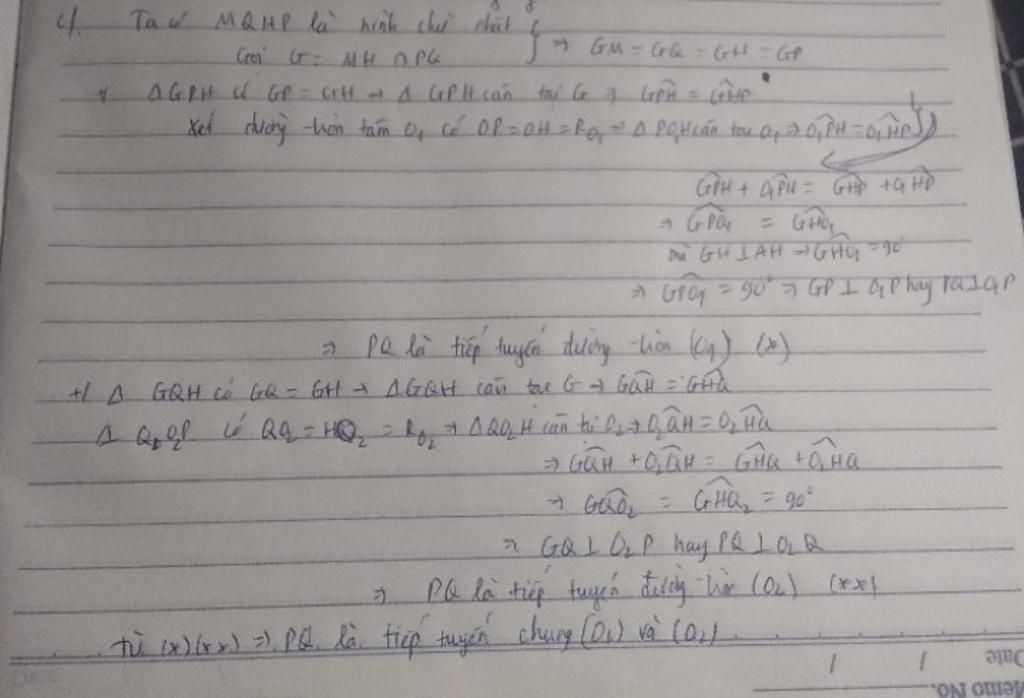 c/ Ta có MQHP là hình chữ nhật } ⇒ GM = GQ = GH = GP
Gọi G = MH ∩ PQ
+ ΔGPH có GP = GH → ΔGPH cân tại G ⇒ GPH^ = GHP^
Xét đường tròn tâm O₁ có OP = OH = R_O₁ → Δ PO₁H cân tại O₁ ⇒ O₁PH^ = O₁HP^
GPH^ + O₁PH^ = GHP^ + O₁HP^
⇒ GPO₁^ = GHO₁^
mà GH ⊥ AH → GHO₁^ = 90°
⇒ GPO₁^ = 90° ⇒ GP ⊥ O₁P hay PQ ⊥ O₁P
⇒ PQ là tiếp tuyến đường tròn (O₁) (*)
+/ Δ GQH có GQ = GH → ΔGQH cân tại G → GQH^ = GHQ^
Δ Q₂O₂P có QO₂ = HO₂ = R_O₂ → ΔQO₂H cân tại O₂ → O₂QH^ = O₂HQ^
⇒ GQH^ + O₂QH^ = GHQ^ + O₂HQ^
⇒ GQO₂^ = GHO₂^ = 90°
⇒ GQ ⊥ O₂P hay PQ ⊥ O₂Q
⇒ PQ là tiếp tuyến đường tròn (O₂) (**)
Từ (*) (**) ⇒ PQ là tiếp tuyến chung (O₁) và (O₂)
Date / /
Memo No.